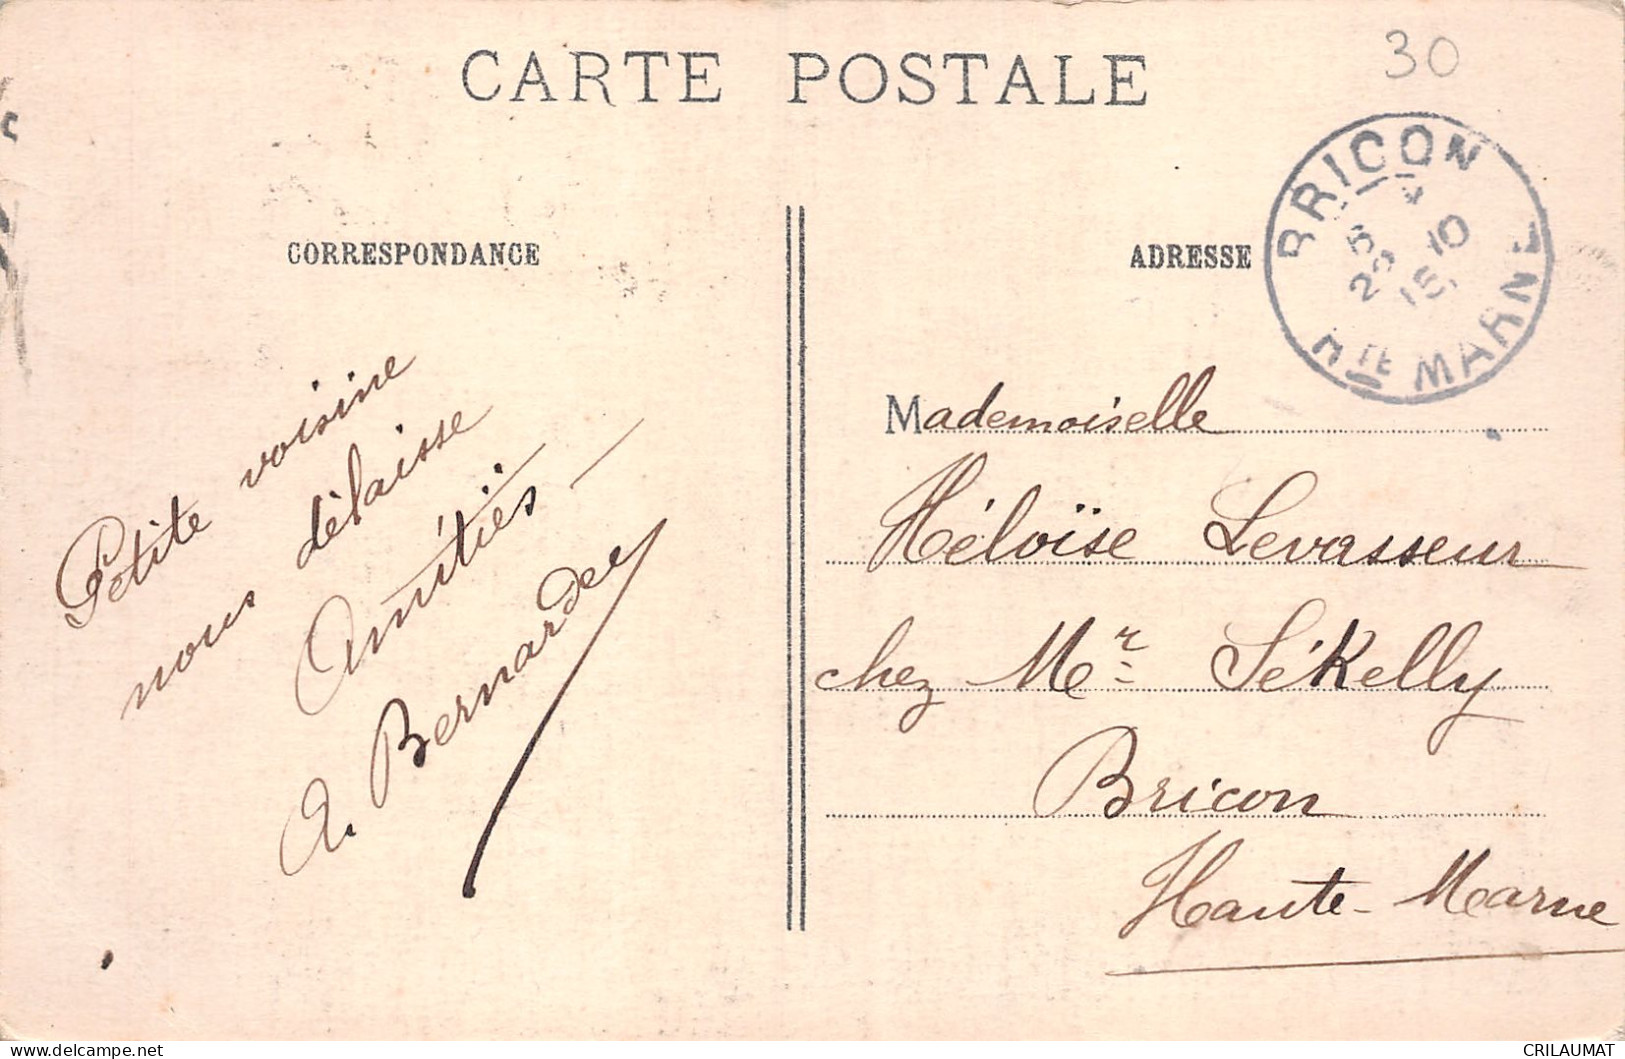 CARTE POSTALE
30
BRICON
Hte MARNE
15 10
CORRESPONDANCE
ADRESSE
Petite voisine
nous délaisse
Amitiés -
A. Bernardey
Mademoiselle
Héloïse Levasseur
chez Mr Sékelly
Bricon
Haute-Marne
delcampe.net
CRILAUMAT